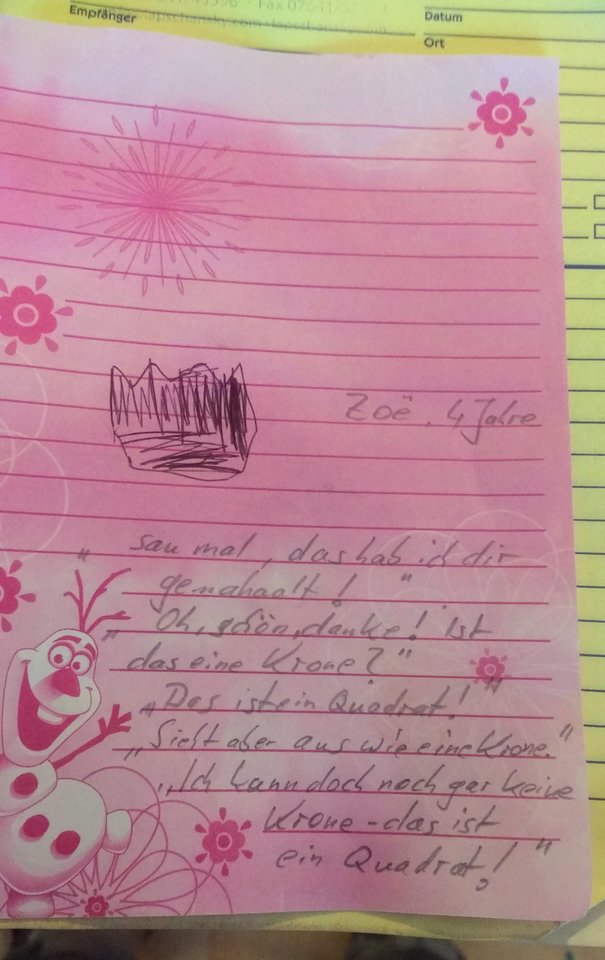 Empfänger
Datum
Ort
Zoë, 4 Jahre
„sau mal, das hab ich dir
gemahaalt!"
„Oh, schön, danke! Ist
das eine Krone?"
„Das ist ein Quadrat!"
„Sieht aber aus wie eine Krone."
„Ich kann doch noch gar keine
Krone - das ist
ein Quadrat!"